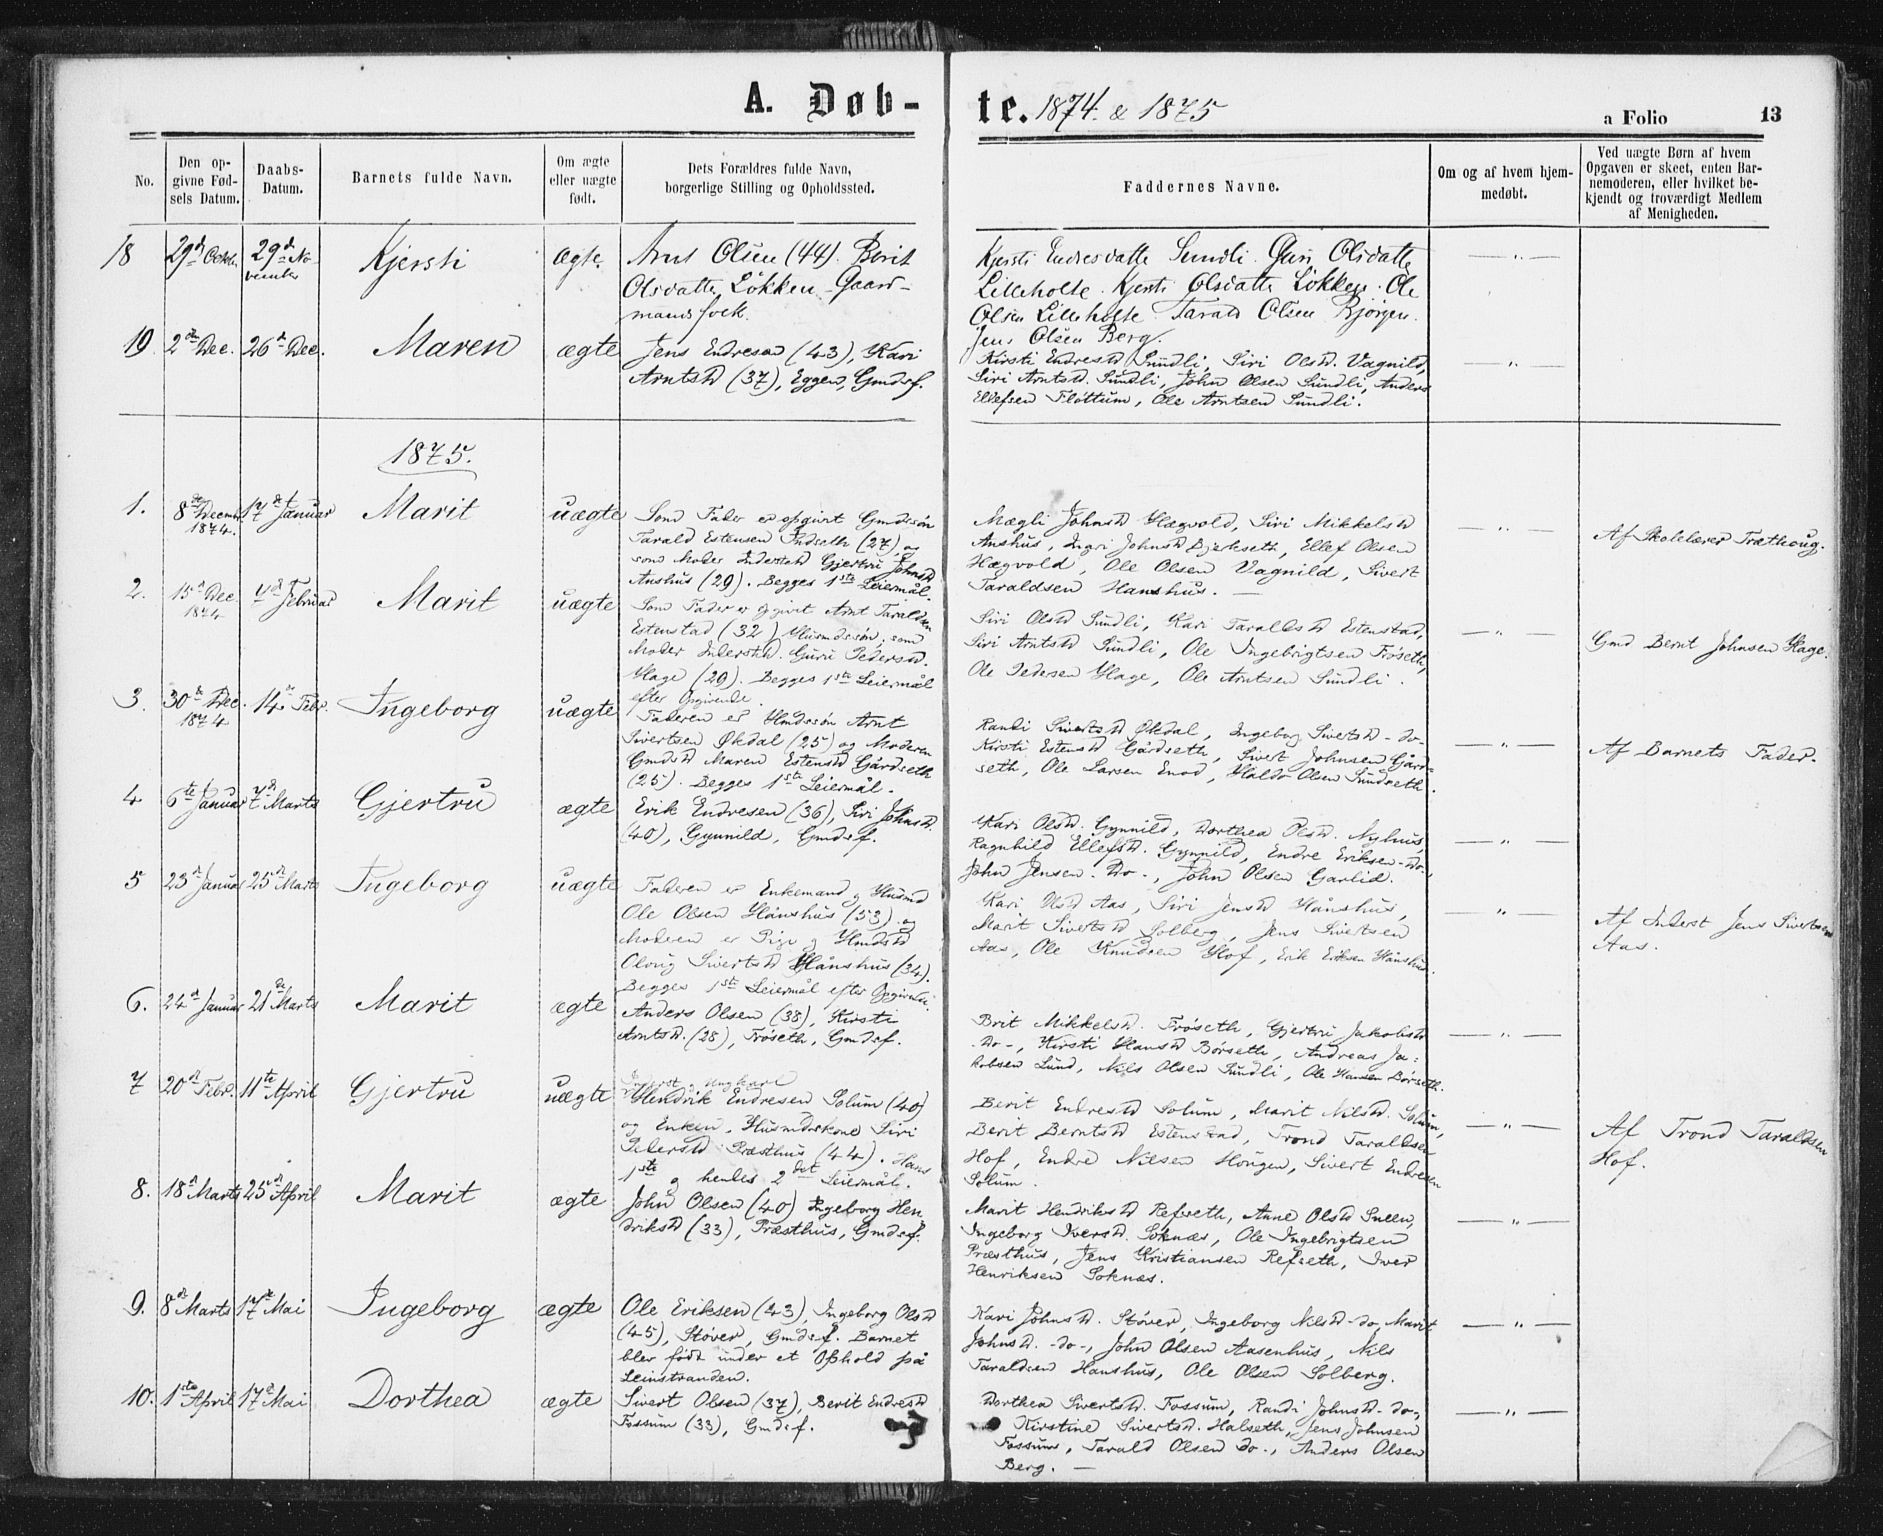 A. Døb-
te. 1874. & 1875
a Folio 13
No.
Den op-
givne Fød-
sels Datum.
Daabs-
Datum.
Barnets fulde Navn.
Om ægte
eller uægte
født.
Dets Forældres fulde Navn,
borgerlige Stilling og Opholdssted.
Faddernes Navne.
Om og af hvem hjem-
medøbt.
Ved uægte Børn af hvem
Opgaven er skeet, enten Bar-
nemoderen, eller hvilket be-
kjendt og troværdigt Medlem
af Menigheden.
18 29d Octbr. 29d No-
vember
Kjersti ægte.
Arnt Olsen (44). Berit
Olsdatte Løkken - Gaard-
mandsfolk.
Kjersti Endresdatte Sundli. Guri Olsdatte
Lilleholte. Kjersti Olsdatte Løkken. Ole
Olsen Lilleholte Tarald Olsen Bjørgen.
Jens Olsen Berg.
— " —
19 2den Dec. 26d Dec. Maren ægte
Jens Endresen (43), Kari
Arntsd (37), Eggen, Gmdsf.
Kirsti Endresd Sundli, Siri Olsd. Vagnild,
Siri Arntsd. Sundli, John Olsen Sundli, Anders
Ellefsen Fløttum, Ole Arntsen Sundli.
— " —
1875.
1. 8de Decembr
1874. 17de Januar Marit uægte
Som Fader er opgivt Gmdssøn
Tarald Estensen Indseth (27), og
som Moder Inderstd Gjertru Johnsd
Anshus (29). Begges 1ste Leiermål.
Mægli Johnsd Hægvold, Siri Mikkelsd
Anshus, Ingri Johnsd Bjerkseth, Ellef Olsen
Hægvold, Ole Olsen Vagnild, Sivert
Taraldsen Hanshus. —
— " —
Af Skolelærer Træthoug.
2. 15d Dec.
1874 4d Februar Marit uægte
Som Fader er opgivt Arnt Taraldsen
Estenstad (32) Husmdssøn, som
Moder Inderstd. Guru Pedersd.
Hage (29). Begges 1ste Leiermål
efter Opgivende.
Siri Olsd Sundli, Kari Taraldsd Estenstad,
Siri Arntsd Sundli, Ole Ingebrigtsen Frøseth,
Ole Pedersen Hage, Ole Arntsen Sundli.
— " —
Gmd Bernt Johnsen Hage.
3. 30de Dec.
1874 14de Febr. Ingeborg uægte
Faderen er Hmdssøn Arnt
Sivertsen Økdal (25) og Moderen
Gmdsd Maren Estensd Gårdseth
(25). Begges 1ste Leiermål.
Randi Sivertsd Økdal, Ingeborg Sivertsd - do -
Kirsti Estensd Gårdseth, Sivert Johnsen Gård-
seth, Ole Larsen Enod, Haldo Olsen Sundseth.
— " —
Af Barnets Fader.
4 6te Januar 7d Marts Gjertru ægte
Erik Endresen (36), Siri Johnsd.
(40), Gynnild, Gmdsf.
Kari Olsd. Gynnild, Dorthea Olsd. Nyhus,
Ragnhild Ellefsd. Gynnild, Endre Eriksen - Do -,
John Jensen - Do -, John Olsen Garlid.
— " —
5 23d Januar 25d Marts Ingeborg uægte
Faderen er Enkemand og Husmd
Ole Olsen Hånshus (53) og
Moderen er Pige og Hmdsd
Oloug Sivertsd Hånshus (34).
Begges 1ste Leiermål efter Opgivende.
Kari Olsd Aas, Siri Jensd Hånshus,
Marit Sivertsd Solberg, Jens Sivertsen
Aas, Ole Knudsen Hof, Erik Eriksen Hånshus.
— " —
Af Inderst Jens Sivertsen
Aas.
6. 24d Januar 21de Marts Marit ægte
Anders Olsen (38), Kirsti
Arntsd. (28), Frøseth, Gmdsf.
Brit Mikkelsd. Frøseth, Gjertru Jakobsd
- Do -, Kirsti Hansd Børseth, Andreas Ja-
kobsen Lund, Nils Olsen Sundli, Ole Hansen Børseth.
— " —
7 20d Febr. 11te April Gjertru uægte
Inderst og Ungkarl
Hendrik Endresen Solum (40)
og Enken, Husmdskone Siri
Pedersd Præsthus (44). Hans
1ste og hendes 2det Leiermål.
Berit Endresd Solum, Marit Nilsd. Solum,
Berit Berntsd Estenstad, Trond Taraldsen
Hof, Endre Nilsen Hougen, Sivert Endresen
Solum.
— " —
Af Trond Taraldsen
Hof.
8. 18d Marts 25d April Marit ægte
John Olsen (40) Ingeborg Hen-
driksd (33), Præsthus, Gmdsf.
Marit Hendriksd Refseth, Anne Olsd Sneen,
Ingeborg Iversd. Soknæs, Ole Ingebrigtsen
Præsthus, Jens Kristiansen Refseth, Iver
Henriksen Soknæs.
— " —
9. 8d Marts 17de Mai Ingeborg ægte
Ole Eriksen (43), Ingeborg Olsd
(45), Støver, Gmdsf. Barnet
blev født under et Ophold på
Leinstranden.
Kari Johnsd. Støver, Ingeborg Nilsd - do, Marit
Johnsd. - do -, John Olsen Aasenhus, Nils
Taraldsen Hanshus, Ole Olsen Solberg.
— " —
10. 1ste April 17d Mai Dorthea ægte
Sivert Olsen (37), Berit Endresd
Fossum (33), Gmdsf.
Dorthea Sivertsd. Fossum, Randi Johnsd - do -,
Kirstine Sivertsd. Halseth, Jens Johnsen
Fossum, Tarald Olsen do -, Anders Olsen
Berg. —
— " —